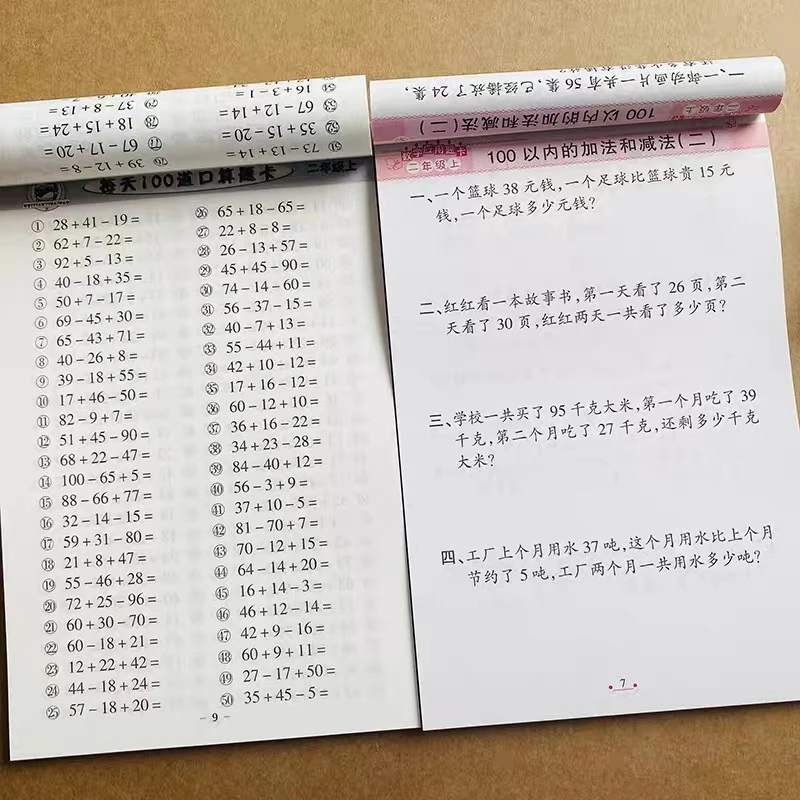 73－13＋14＝
35＋15－20＝
67－12＋14＝
39＋12－8＝
67－17＋20＝
18＋15＋24＝
37－8＋13＝
每天100道口算题卡 二年级上
① 28＋41－19＝
② 62＋7－22＝
③ 92＋5－13＝
④ 40－18＋35＝
⑤ 50＋7－17＝
⑥ 69－45＋30＝
⑦ 65－43＋71＝
⑧ 40－26＋8＝
⑨ 39－18＋55＝
⑩ 17＋46－50＝
⑪ 82－9＋7＝
⑫ 51＋45－90＝
⑬ 68＋22－47＝
⑭ 100－65＋5＝
⑮ 88－66＋77＝
⑯ 32－14－15＝
⑰ 59＋31－80＝
⑱ 21＋8＋47＝
⑲ 55－46＋28＝
⑳ 72＋25－96＝
㉑ 60＋30－70＝
㉒ 60－18＋21＝
㉓ 12＋22＋42＝
㉔ 44－18＋24＝
㉕ 57－18＋20＝
㉖ 65＋18－65＝
㉗ 22＋8－8＝
㉘ 26－13＋57＝
㉙ 45＋45－90＝
㉚ 74－14－60＝
㉛ 56－37－15＝
㉜ 40－7＋13＝
㉝ 55－44＋11＝
㉞ 42＋10－12＝
㉟ 17＋16－12＝
㊱ 60－12＋10＝
㊲ 36＋16－22＝
㊳ 34＋23－28＝
㊴ 84－40＋12＝
㊵ 56－3＋9＝
㊶ 37＋10－5＝
㊷ 81－70＋7＝
㊸ 70－12＋15＝
㊹ 64－14＋20＝
㊺ 16＋14－3＝
㊻ 46＋12－14＝
㊼ 42＋9－16＝
㊽ 60＋9＋11＝
㊾ 27－17＋50＝
㊿ 35＋45－5＝
－9－
二年级上 100以内的加法和减法(二)
一、一部动画片一共有56集，已经播放了24集，
数学应用题卡
二年级上 100以内的加法和减法(二)
一、一个篮球38元钱，一个足球比篮球贵15元
钱，一个足球多少元钱？
二、红红看一本故事书，第一天看了26页，第二
天看了30页，红红两天一共看了多少页？
三、学校一共买了95千克大米，第一个月吃了39
千克，第二个月吃了27千克，还剩多少千克
大米？
四、工厂上个月用水37吨，这个月用水比上个月
节约了5吨，工厂两个月一共用水多少吨？
7